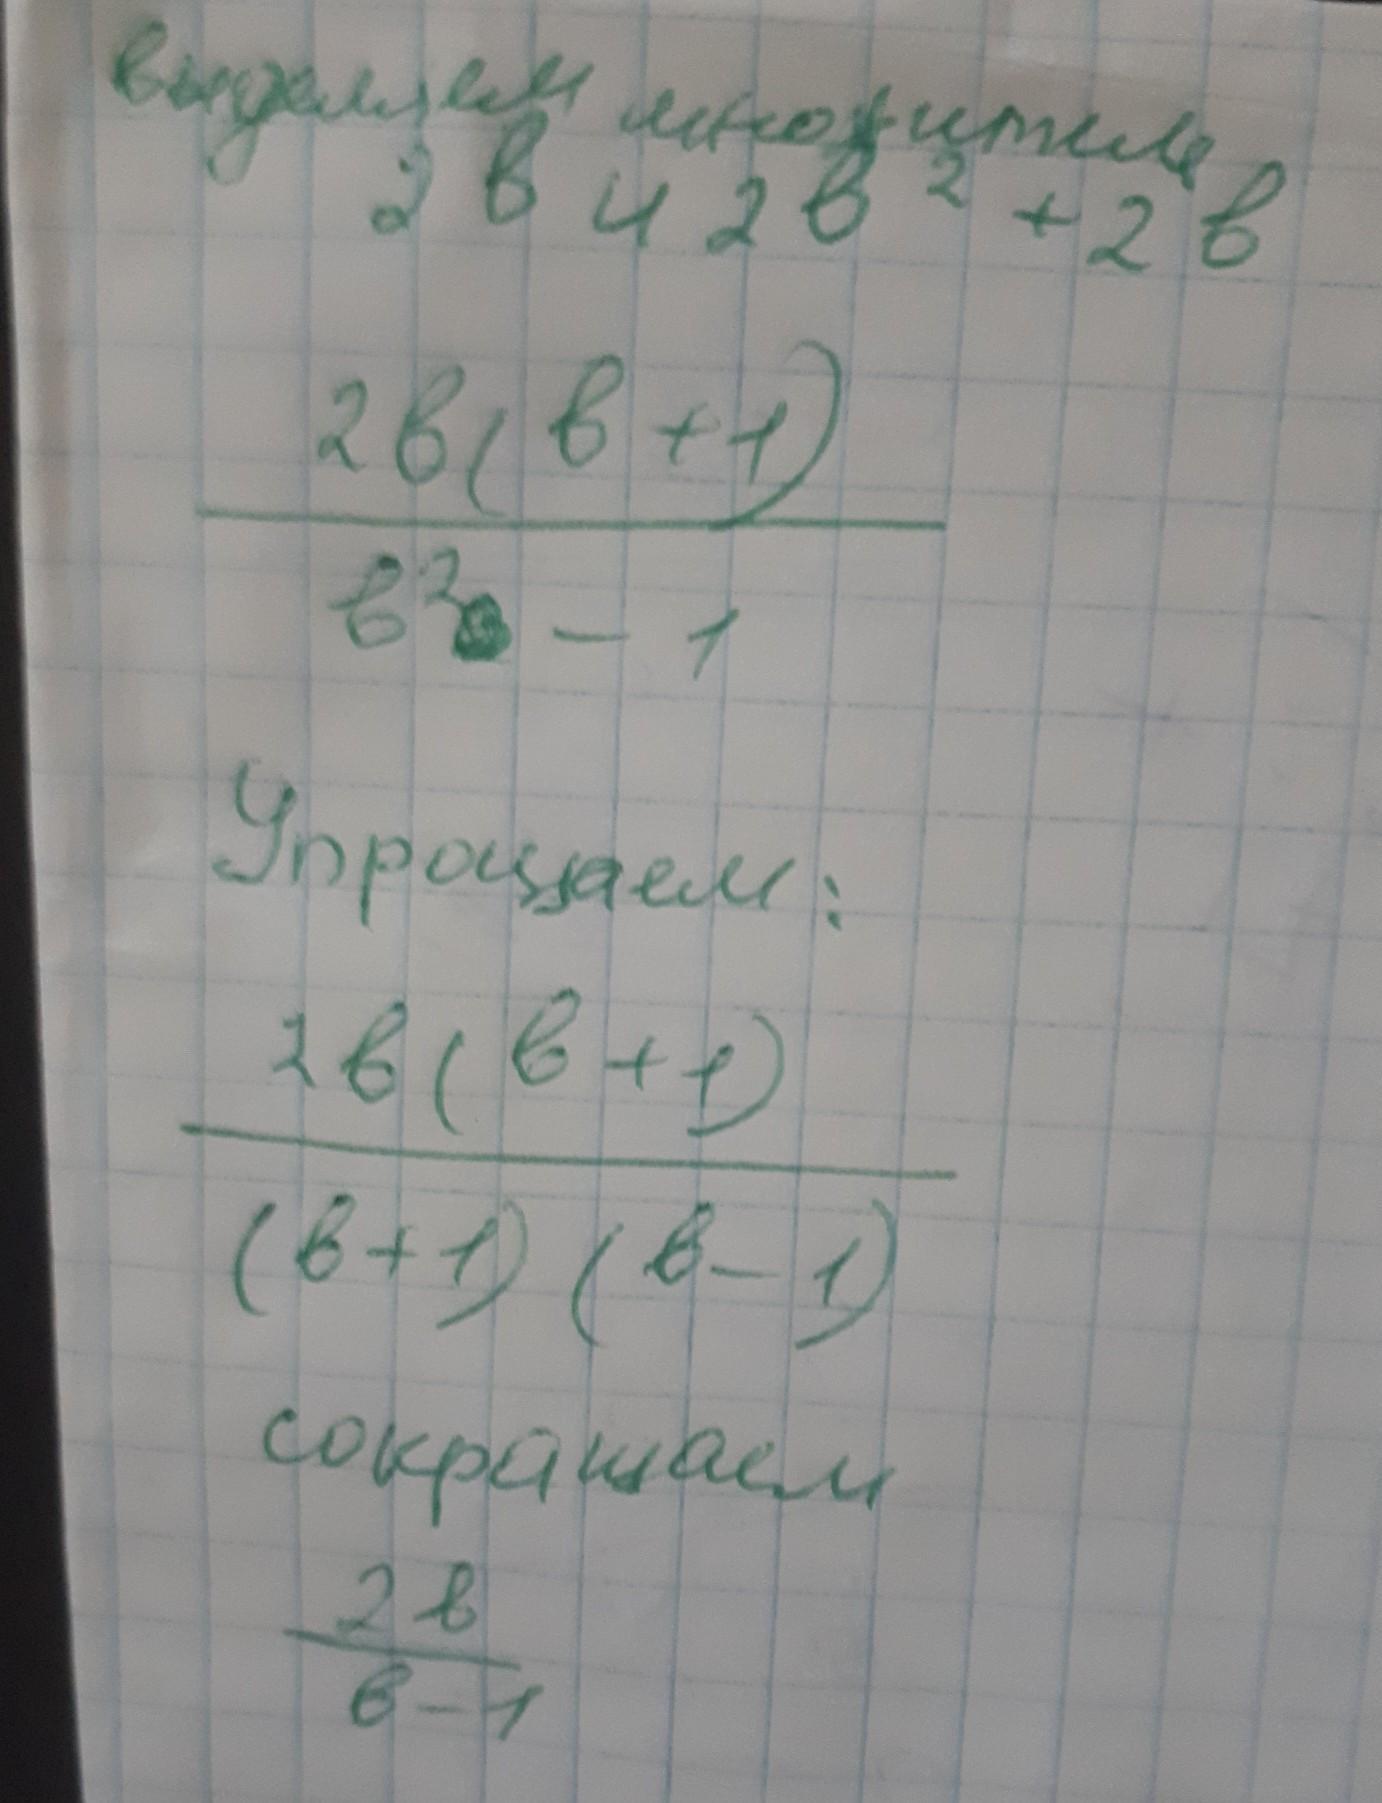 выделяем множитель
2в и 2в² + 2в
2в(в+1)
в² - 1
Упрощаем:
2в(в+1)
(в+1)(в-1)
сокращаем
2в
в-1